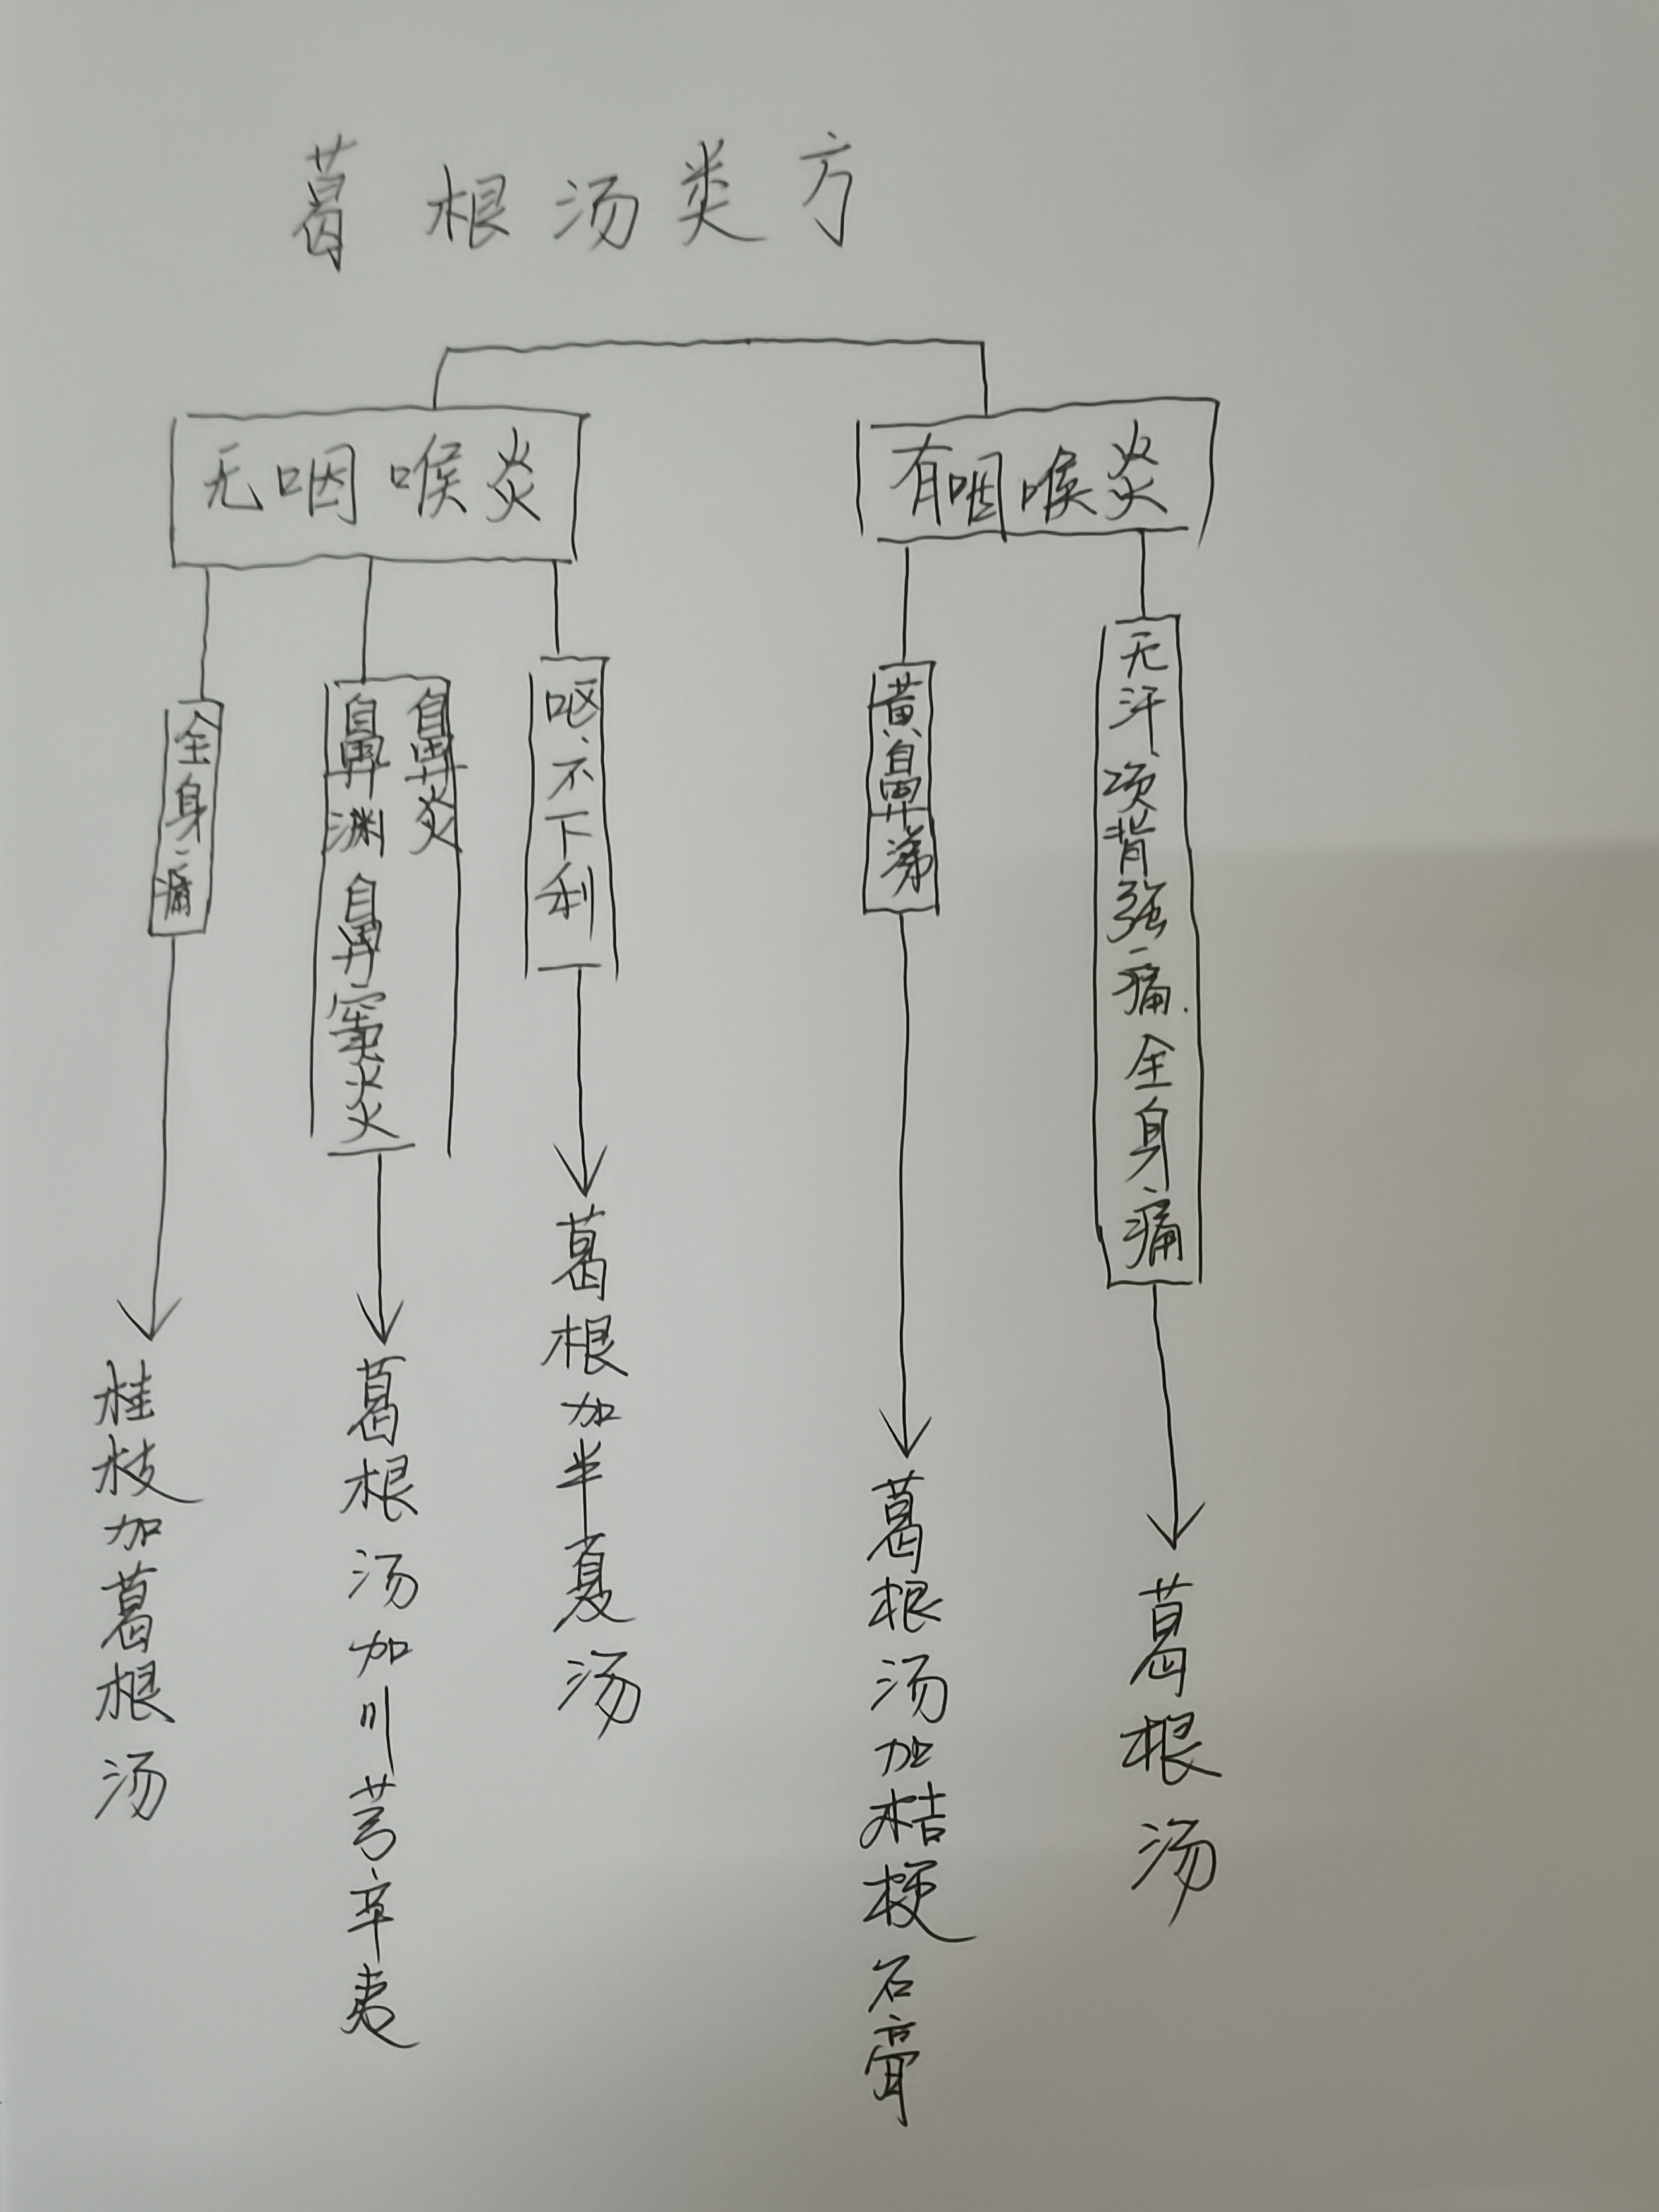 葛根汤类方
无咽喉炎
有咽喉炎
全身痛
鼻炎
鼻渊鼻窦炎
呕不下利
黄鼻涕
无汗项背强痛全身痛
桂枝加葛根汤
葛根汤加川芎辛夷
葛根加半夏汤
葛根汤加桔梗石膏
葛根汤